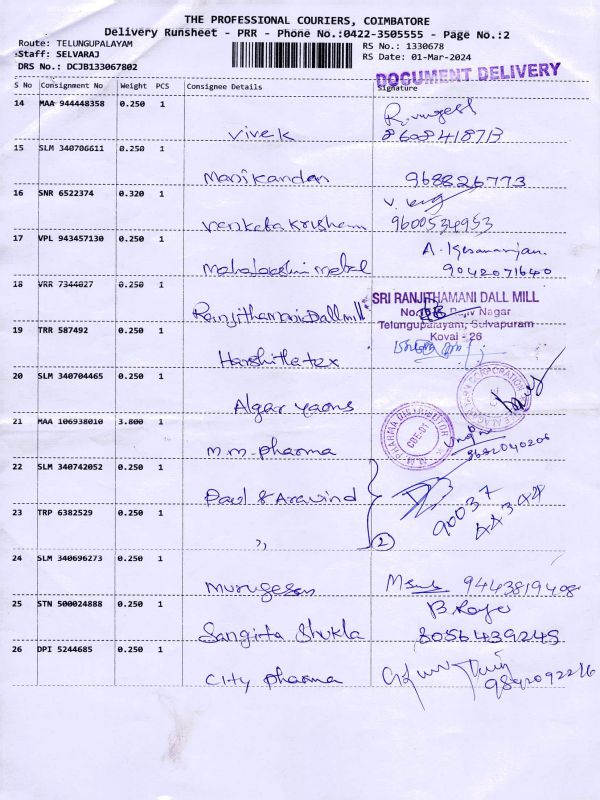 THE PROFESSIONAL COURIERS, COIMBATORE
Delivery Runsheet - PRR - Phone No.:0422-3505555 - Page No.:2
Route: TELUNGUPALAYAM RS No.: 1330678
Staff: SELVARAJ RS Date: 01-Mar-2024
DRS No.: DCJB133067802
DOCUMENT DELIVERY
S No Consignment No Weight PCS Consignee Details Signature
14 MAA 944448358 0.250 1
Vivek
15 SLM 340706611 0.250 1
Manikandan 968826773
16 SNR 6522374 0.320 1
Venkata Krishnan 9600534953
17 VPL 943457130 0.250 1
Mahalakshmi metal 9042071640
18 VRR 7344027 0.250 1
Ranjithamani Dall mill
SRI RANJITHAMANI DALL MILL
Nagar
Telungupalayam, Selvapuram
Kovai - 26
19 TRR 587492 0.250 1
20 SLM 340704465 0.250 1
Algar yaons
21 MAA 106938010 3.800 1
M.M. pharma
CBE-01
22 SLM 340742052 0.250 1
Paul & Aravind
90037
44344
23 TRP 6382529 0.250 1
,, 2
24 SLM 340696273 0.250 1
Murugesan 9443819408
25 STN 500024888 0.250 1
Sangita Shukla 8056439245
26 DPI 5244685 0.250 1
City pharma